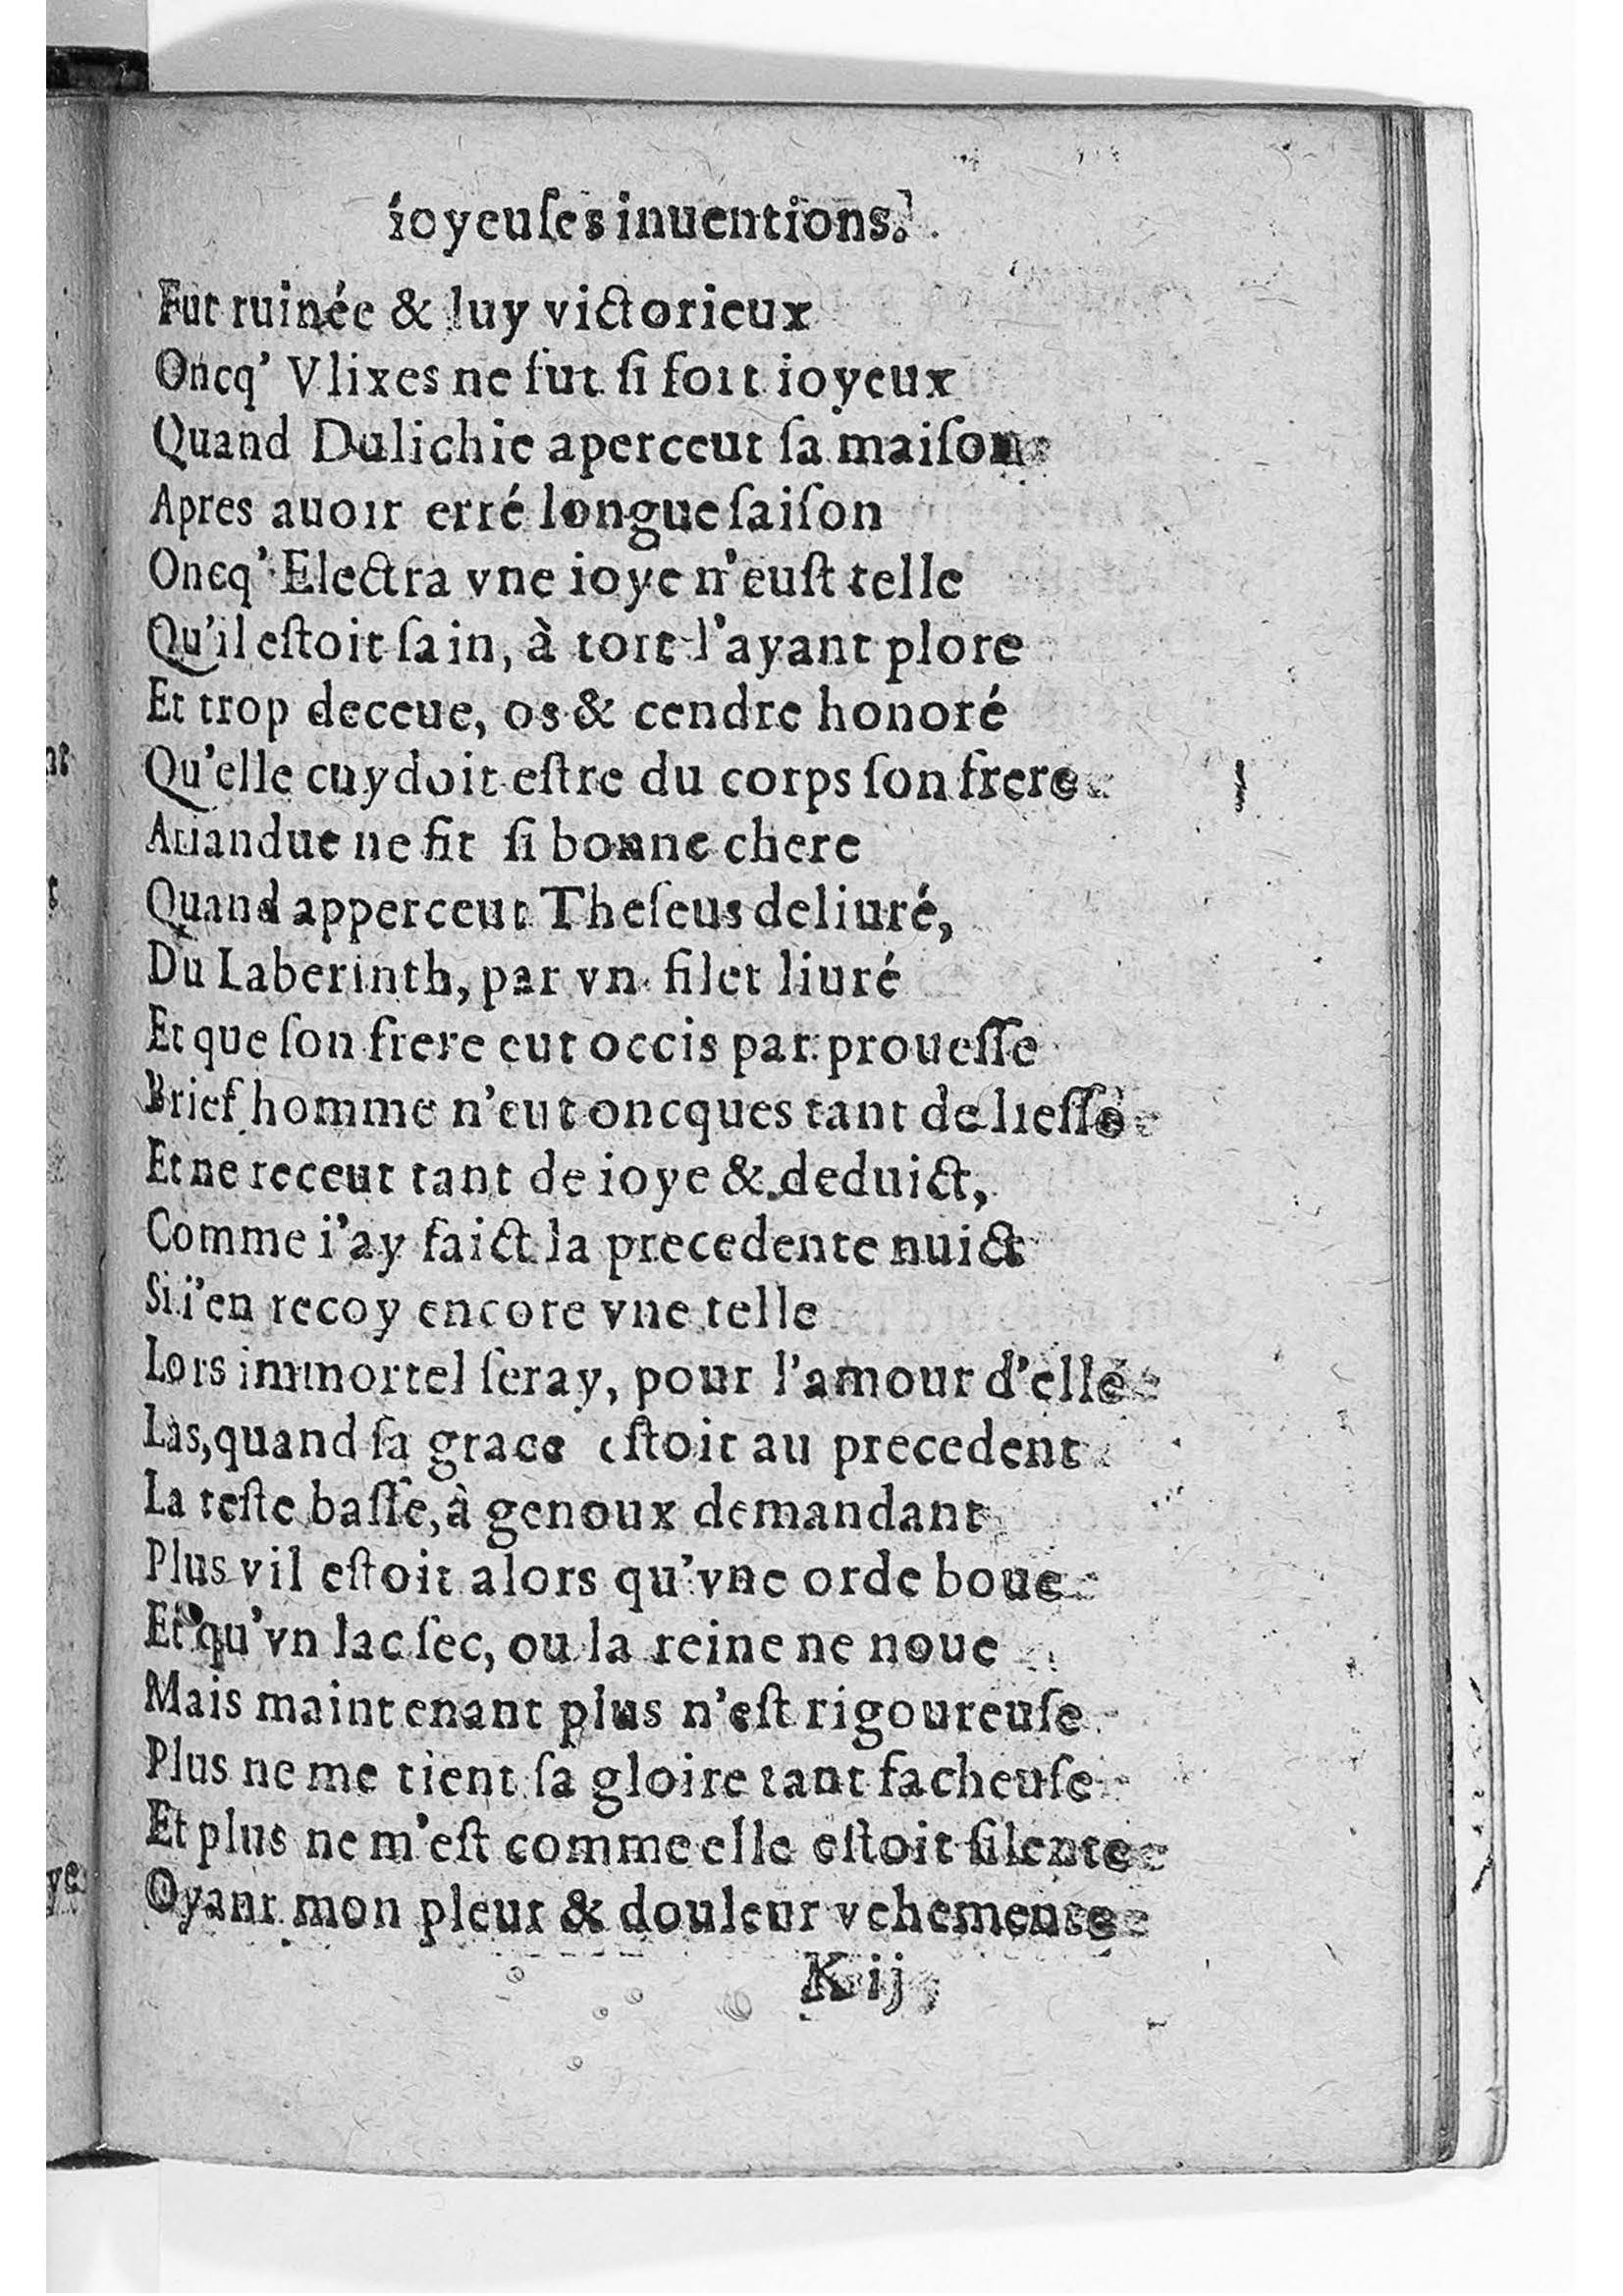 ioyeuſes inuentions.
Fut ruinée & luy victorieux
Oncq' Vlixes ne fut ſi fort ioyeux
Quand Dulichie aperceut ſa maiſon
Apres auoir erré longue ſaiſon
Oncq' Electra vne ioye n'euſt telle
Qu'il eſtoit ſain, à tort l'ayant plore
Et trop deceue, os & cendre honoré
Qu'elle cuydoit eſtre du corps ſon frere
Ariandue ne fit ſi bonne chere
Quand apperceut Theſeus deliuré,
Du Laberinth, par vn filet liuré
Et que ſon frere eut occis par proueſſe
Brief homme n'eut oncques tant de lieſſe
Et ne receut tant de ioye & deduict,
Comme i'ay faict la precedente nuict
Si i'en recoy encore vne telle
Lors immortel ſeray, pour l'amour d'elle
Las, quand ſa grace eſtoit au precedent
La teſte baſſe, à genoux demandant
Plus vil eſtoit alors qu'vne orde boue
Et qu'vn lac ſec, ou la reine ne noue
Mais maintenant plus n'eſt rigoureuſe
Plus ne me tient ſa gloire tant facheuſe
Et plus ne m'eſt comme elle eſtoit ſilente
Oyant mon pleur & douleur vehemente
K ij